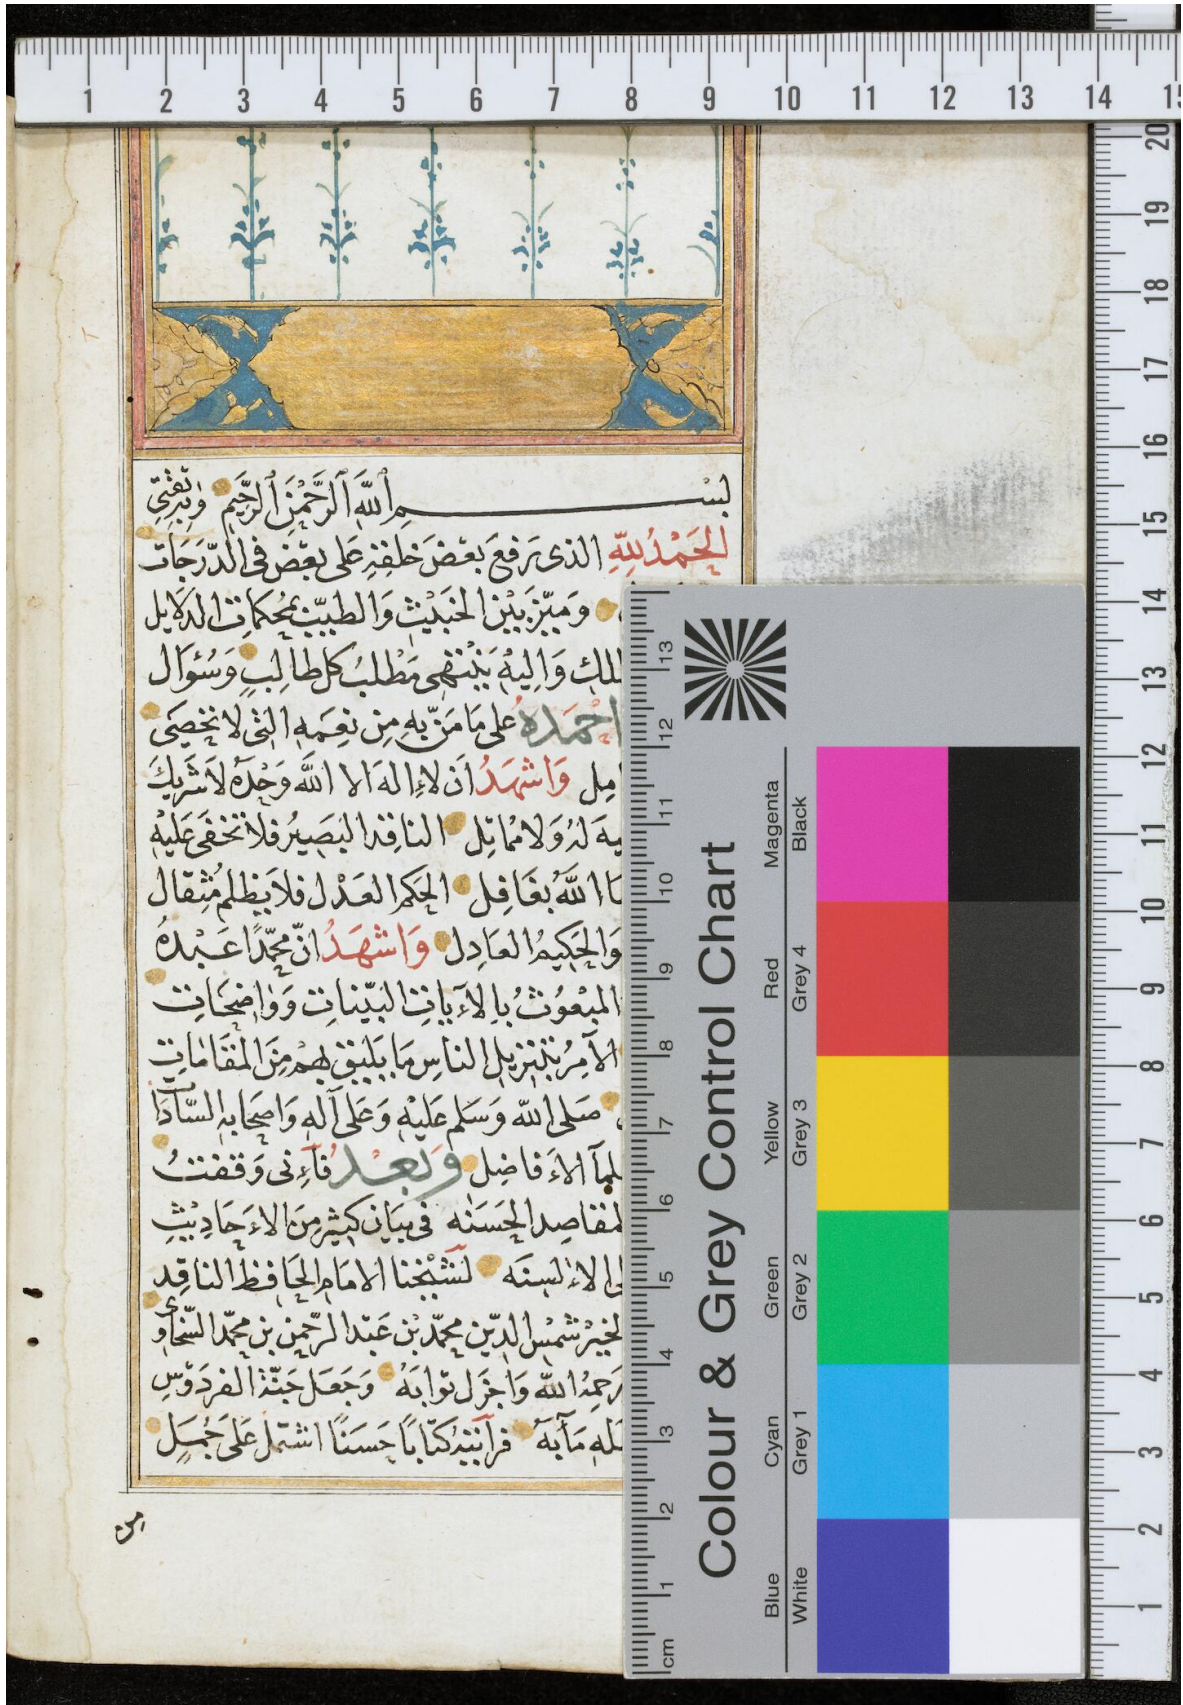 1 2 3 4 5 6 7 8 9 10 11 12 13 14 15
بسم الله الرحمن الرحيم وبه ثقتي
الحمد لله الذى رفع بعض خلقه على بعض فى الدرجات
وميز بين الخبيث والطيب بمحكمات الدلايل
واليه ينتهى مطلب كل طالب وسؤال
احمده على ما من به من نعمه التى لا تحصى
واشهد ان لا اله الا الله وحده لا شريك
له ولا مماثل الناقد البصير فلا تخفى عليه
الله بغافل الحكم العدل فلا يظلم مثقال
والحكيم العادل واشهد ان محمدا عبده
المبعوث بالآيات البينات وواضحات
الآمر بتنزيل الناس ما يليق بهم من المقامات
صلى الله وسلم عليه وعلى آله واصحابه السادا
الافاضل وبعد فانى وقفت
المقاصد الحسنه فى بيان كثير من الاحاديث
الالسنه لشيخنا الامام الحافظ الناقد
الخير شمس الدين محمد بن عبد الرحمن بن محمد السخاوى
رحمه الله واجزل ثوابه وجعل جنة الفردوس
مآبه فرأيته كتابا حسنا اشتمل على جمل
من
20 19 18 17 16 15 14 13 12 11 10 9 8 7 6 5 4 3 2 1
13 12 11 10 9 8 7 6 5 4 3 2 1 cm
Colour & Grey Control Chart
Blue Cyan Green Yellow Red Magenta
White Grey 1 Grey 2 Grey 3 Grey 4 Black